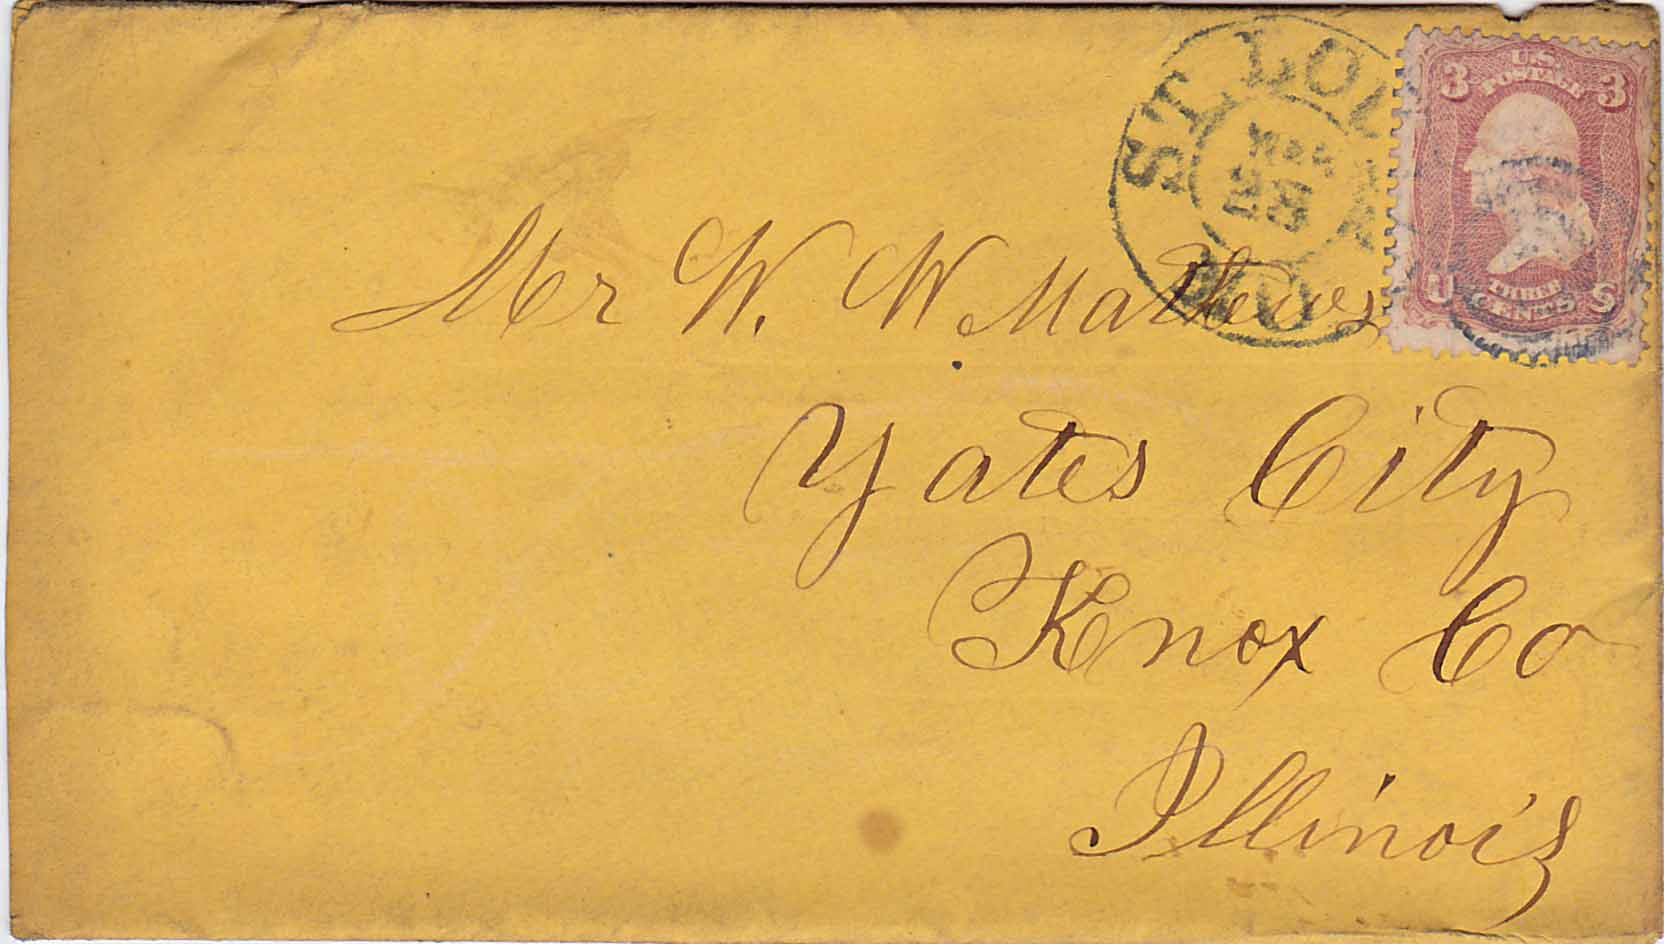 ST. LOU
MO
3 U.S. 3
POSTAGE
U THREE S
CENTS
Mr W. W. Mathews
Yates City
Knox Co
Illinois